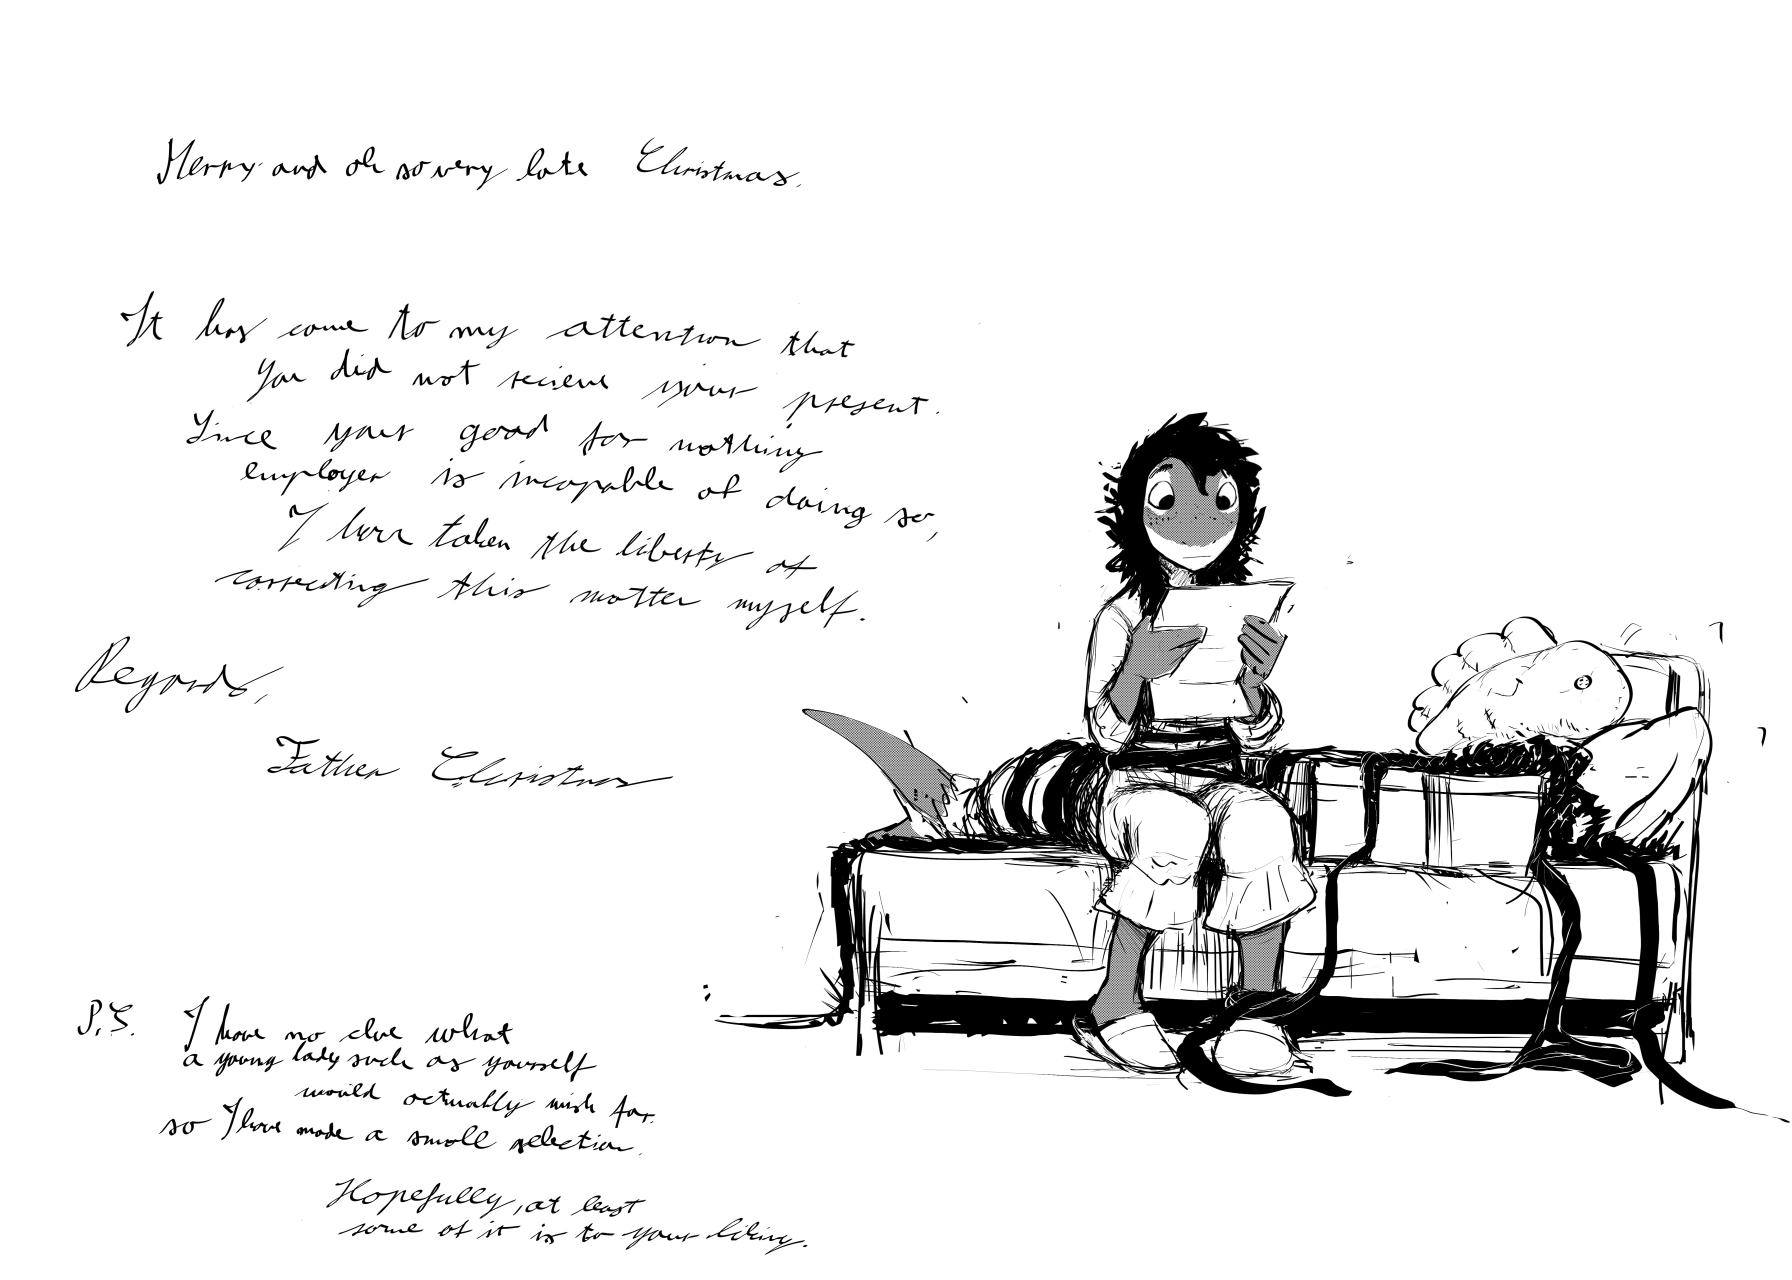 Merry and oh so very late Christmas.
It has come to my attention that
you did not recieve your present.
Since your good for nothing
employer is incapable of doing so,
I have taken the liberty of
correcting this matter myself.
Regards,
Father Christmas
P.S. I have no clue what
a young lady such as yourself
would actually wish for.
so I have made a small selection.
Hopefully, at least
some of it is to your liking.